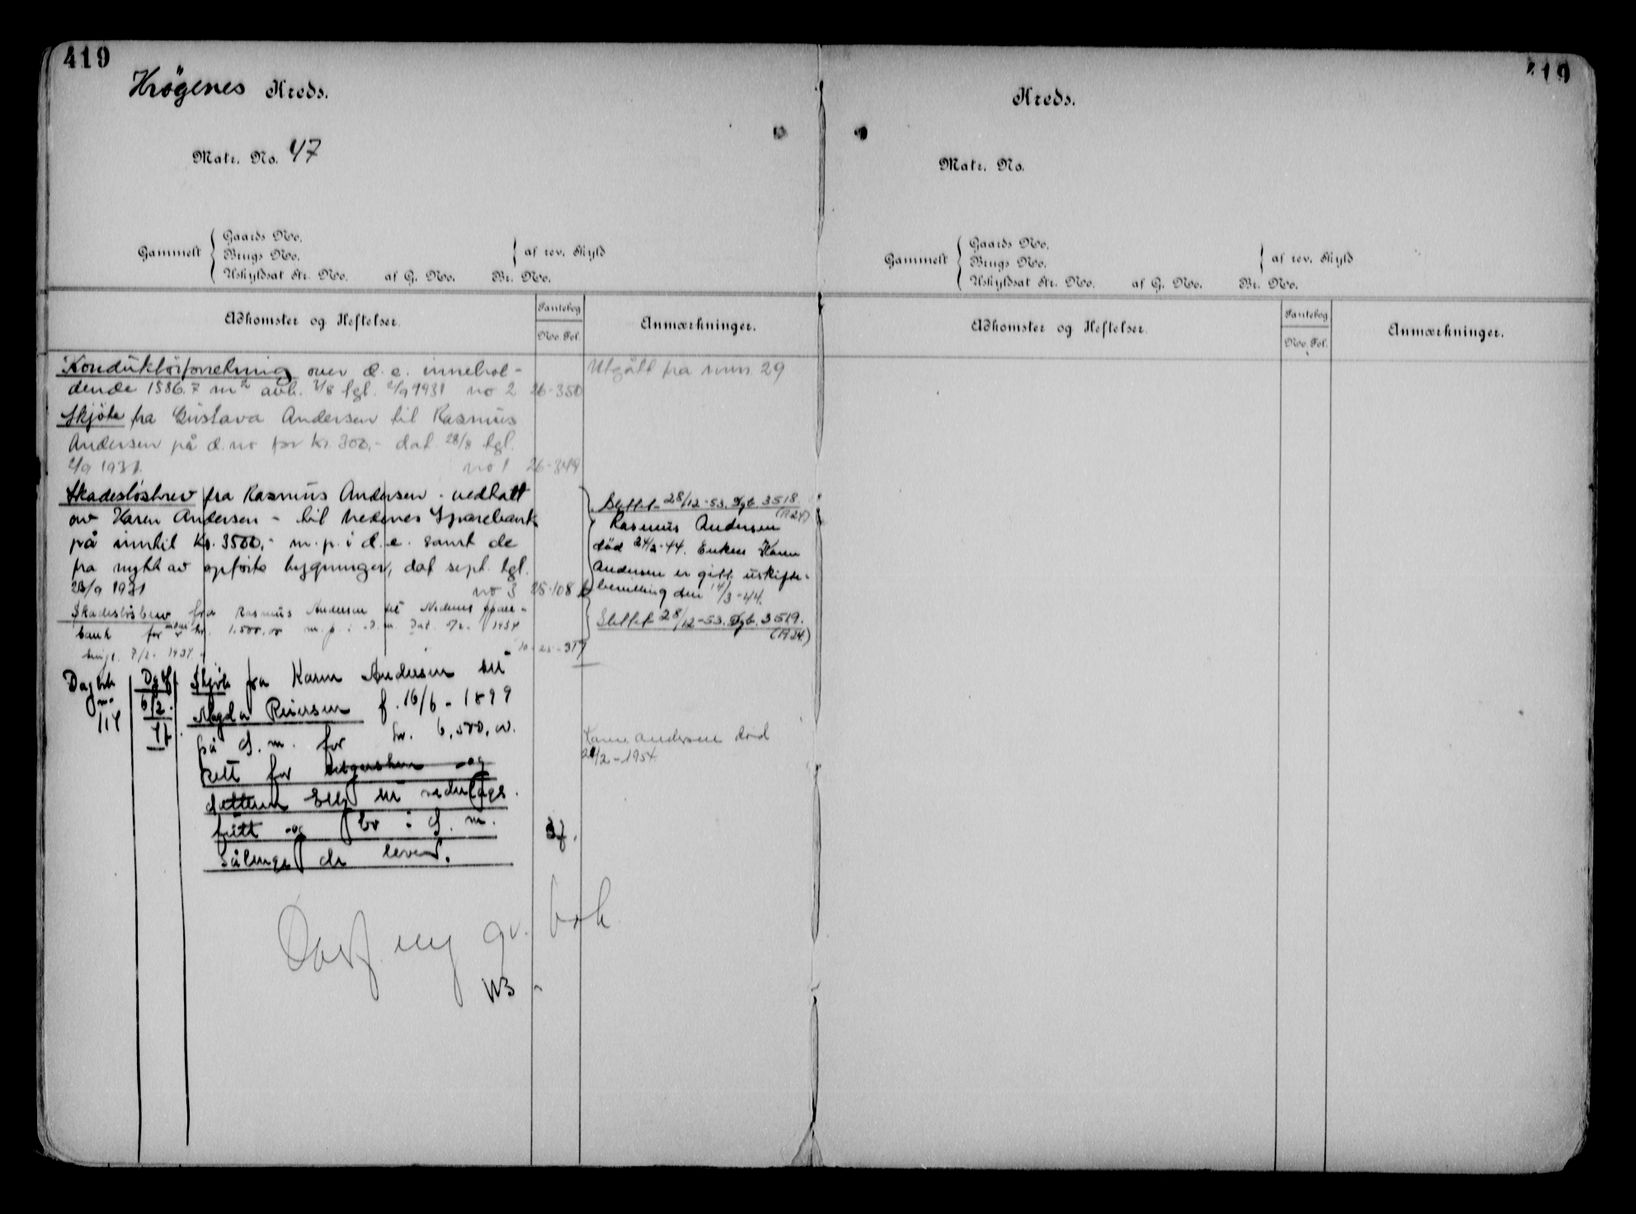 419
Krøgenes Kreds.
Matr. No. 47
Gammelt
Gaards No.
Brugs No.
Uskyldsat Str. No. af G. No. Br. No.
af rev. Skyld
Adkomster og Heftelser.
Pantebog
No. Fol.
Anmærkninger.
Konduktørforretning over d. e. innehol-
dende 1586.7 m² avh. 4/8 tgl. 2/9 1931 no 2 26-350
Utgått fra mnr. 29
Skjøte fra Gustava Andersen til Rasmus
Andersen på d. no for kr. 300,- dat 28/8 tgl.
2/9 1931. no 1 26-349
Skadesløsbrev fra Rasmus Andersen - vedtatt
av Karen Andersen - til Nedenes Sparebank
på inntil kr. 3500,- m. p. i d. e. samt de
fra nytt av opførte bygninger, dat sept. tgl.
23/9 1931 no 3 25-108
Slettet 28/12-53. Dgb. 3518.
Rasmus Andersen
død 24/2-44. Enken Karen
Andersen er gitt uskifte-
bevilling den 14/3-44.
Slettet 28/12-53. Dgb. 3519.
(1934)
Skadesløsbrev fra Rasmus Andersen til Nedenes Spare-
bank for kr. 1.500,00 m. p. i d. m. Dat. 1934
tingl. 7/2 1934
Dagbok
no
114
6/2.
Skjøte fra Karen Andersen til
Magda Reiersen f. 16/6-1899
på d. m. for kr. 6.500,00.
Rett for og
datteren Elly til vederlags-
fritt og bo i d. m.
sålenge de lever.
Karen Andersen død
1954.
Overf. ny gr. bok
NB
419
Kreds.
Matr. No.
Gammelt
Gaards No.
Brugs No.
Uskyldsat Str. No. af G. No. Br. No.
af rev. Skyld
Adkomster og Heftelser.
Pantebog
No. Fol.
Anmærkninger.